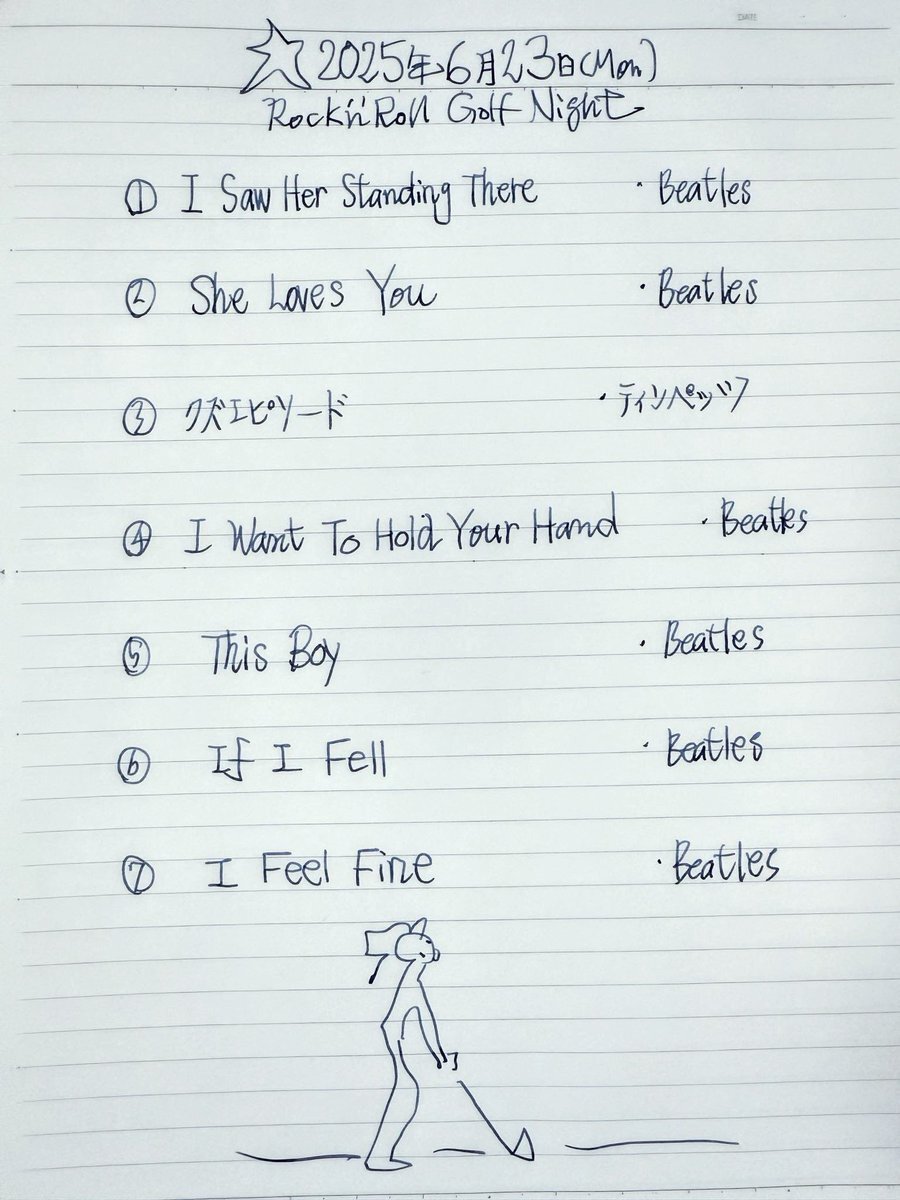 DATE
☆2025年6月23日(Mon)
Rock'n'Roll Golf Night
① I Saw Her Standing There ・Beatles
② She Loves You ・Beatles
③ クズエピソード ・ティンペッツ
④ I Want To Hold Your Hand ・Beatles
⑤ This Boy ・Beatles
⑥ If I Fell ・Beatles
⑦ I Feel Fine ・Beatles